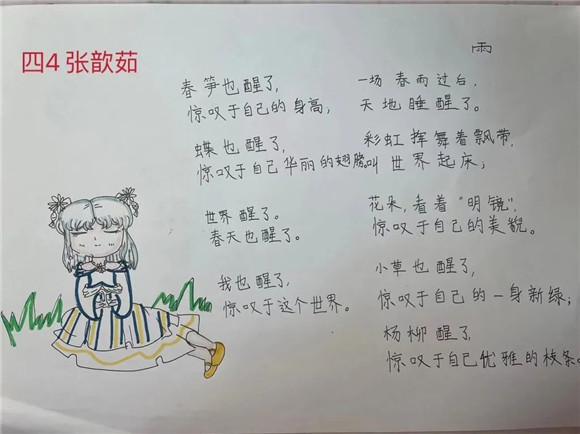 四4 张歆茹
雨
一场春雨过后,
天地睡醒了。
彩虹挥舞着飘带,
叫世界起床;
花朵,看着“明镜”,
惊叹于自己的美貌。
小草也醒了,
惊叹于自己的一身新绿;
杨柳醒了,
惊叹于自己优雅的枝条。
春笋也醒了,
惊叹于自己的身高;
蝶也醒了,
惊叹于自己华丽的翅膀。
世界醒了。
春天也醒了。
我也醒了,
惊叹于这个世界。